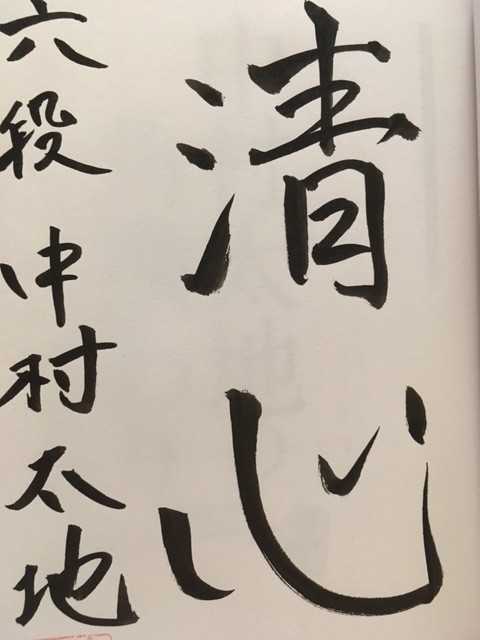 清心
六段 中村太地